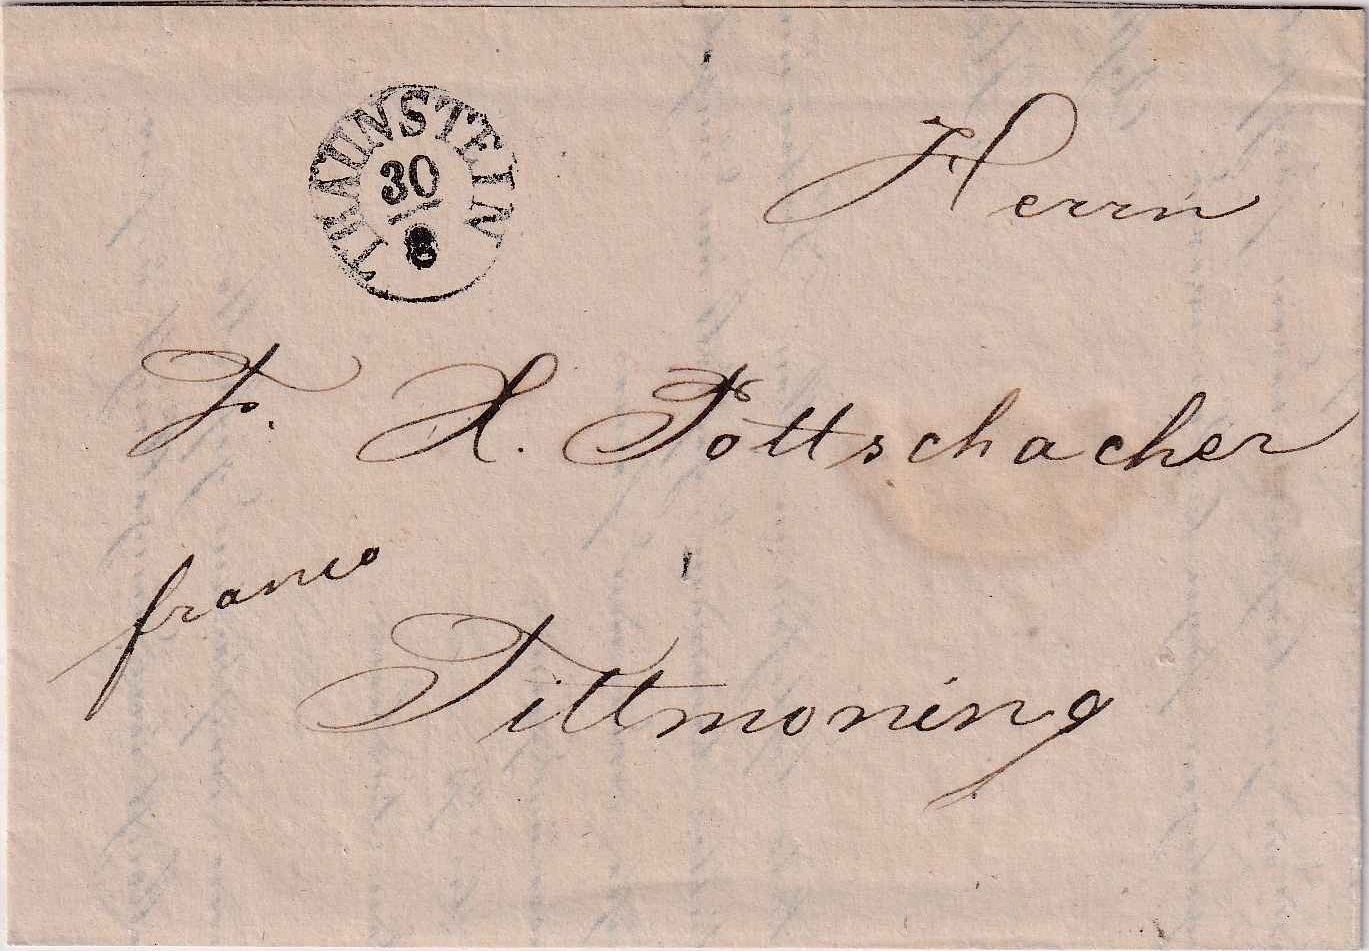 TRAUNSTEIN
30
8
Herrn
F. X. Pottschacher
franco
Tittmoning